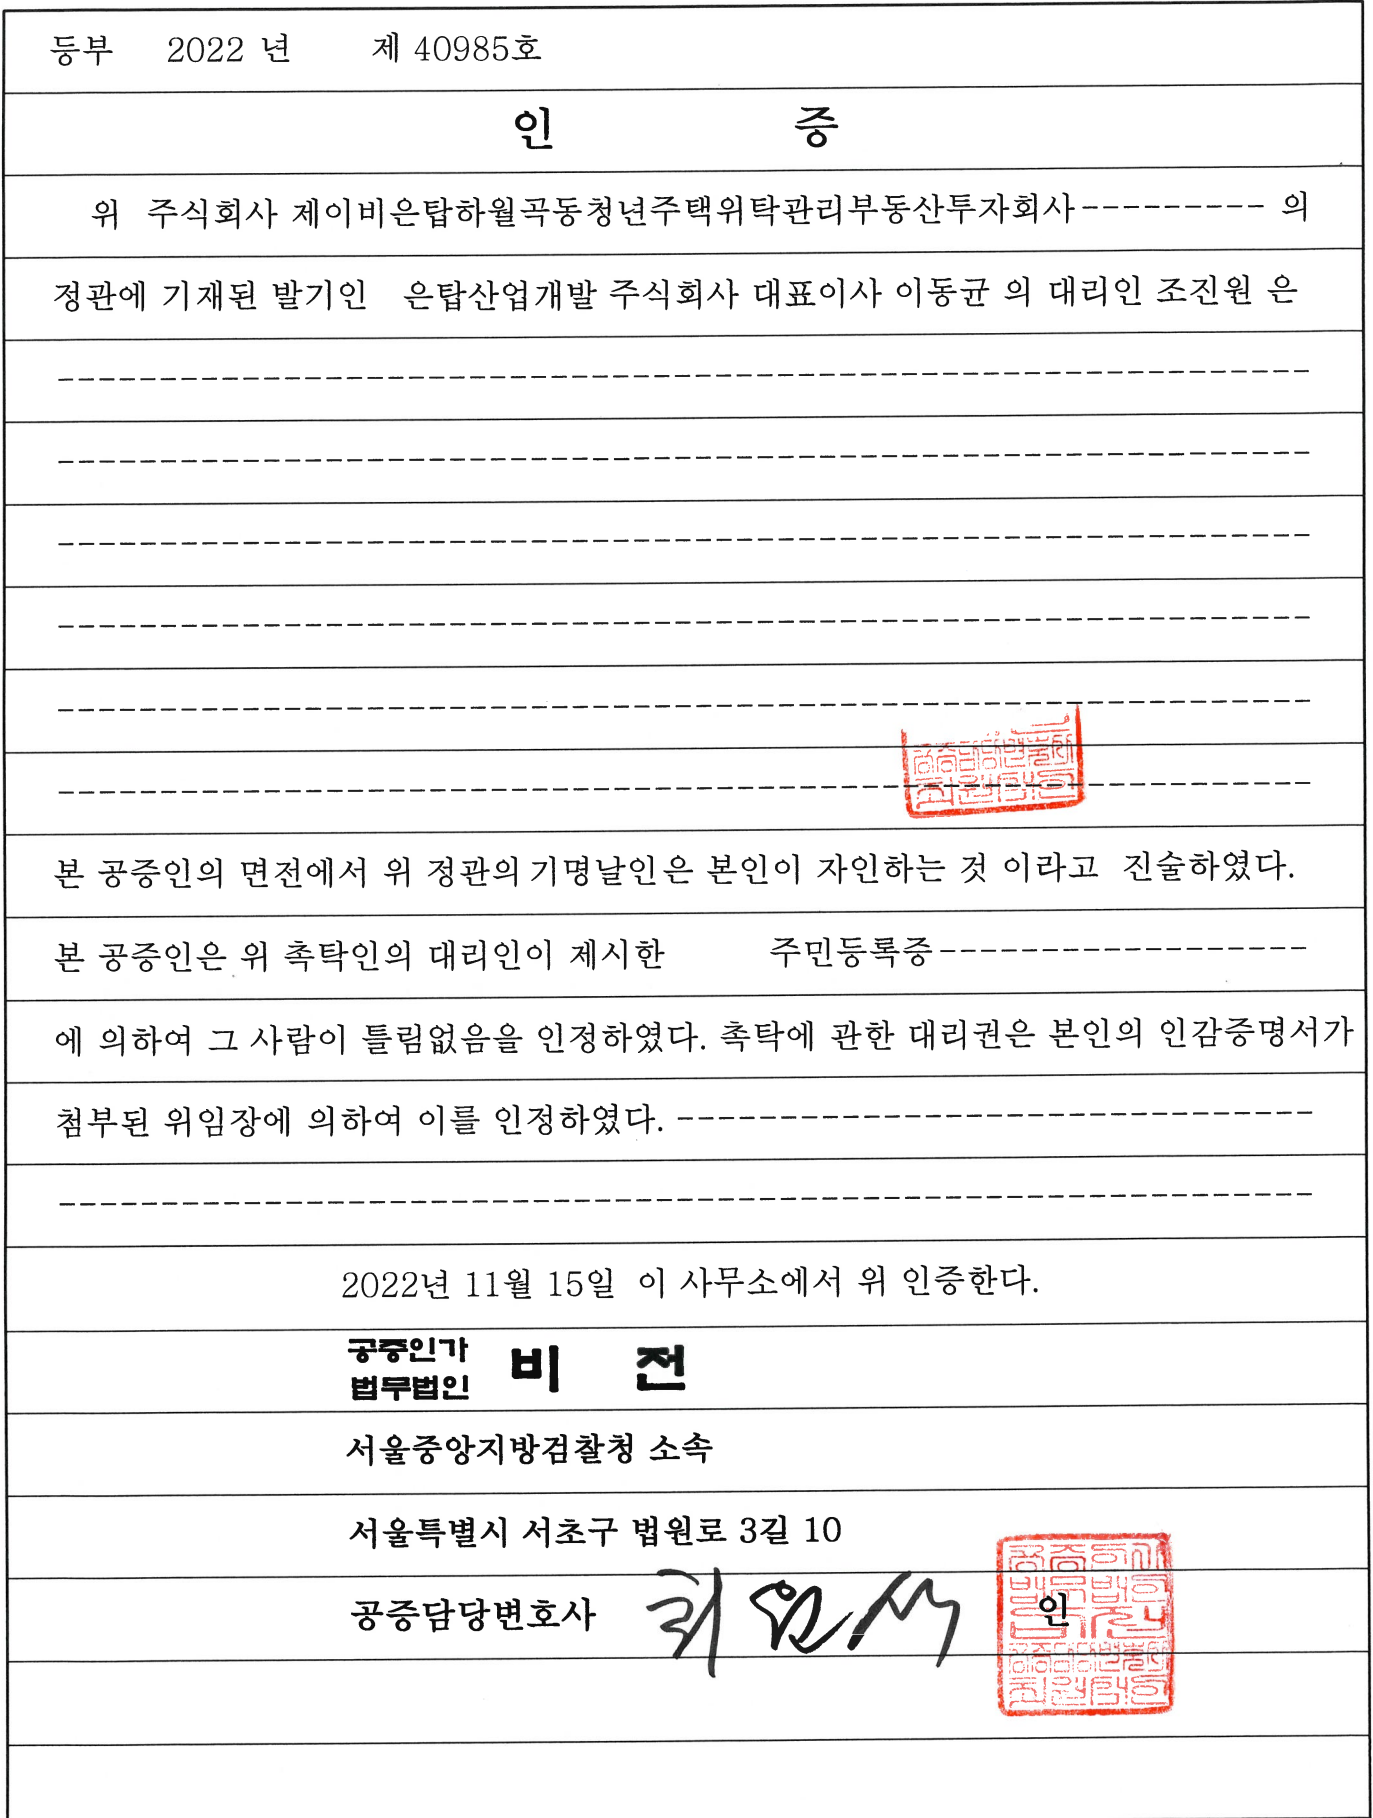 등부 2022 년 제 40985호
인 증
위 주식회사 제이비은탑하월곡동청년주택위탁관리부동산투자회사--------- 의
정관에 기재된 발기인 은탑산업개발 주식회사 대표이사 이동균 의 대리인 조진원 은
본 공증인의 면전에서 위 정관의 기명날인은 본인이 자인하는 것 이라고 진술하였다.
본 공증인은 위 촉탁인의 대리인이 제시한 주민등록증------------------
에 의하여 그 사람이 틀림없음을 인정하였다. 촉탁에 관한 대리권은 본인의 인감증명서가
첨부된 위임장에 의하여 이를 인정하였다. -------------------------------
2022년 11월 15일 이 사무소에서 위 인증한다.
공증인가
법무법인 비 전
서울중앙지방검찰청 소속
서울특별시 서초구 법원로 3길 10
공증담당변호사 인